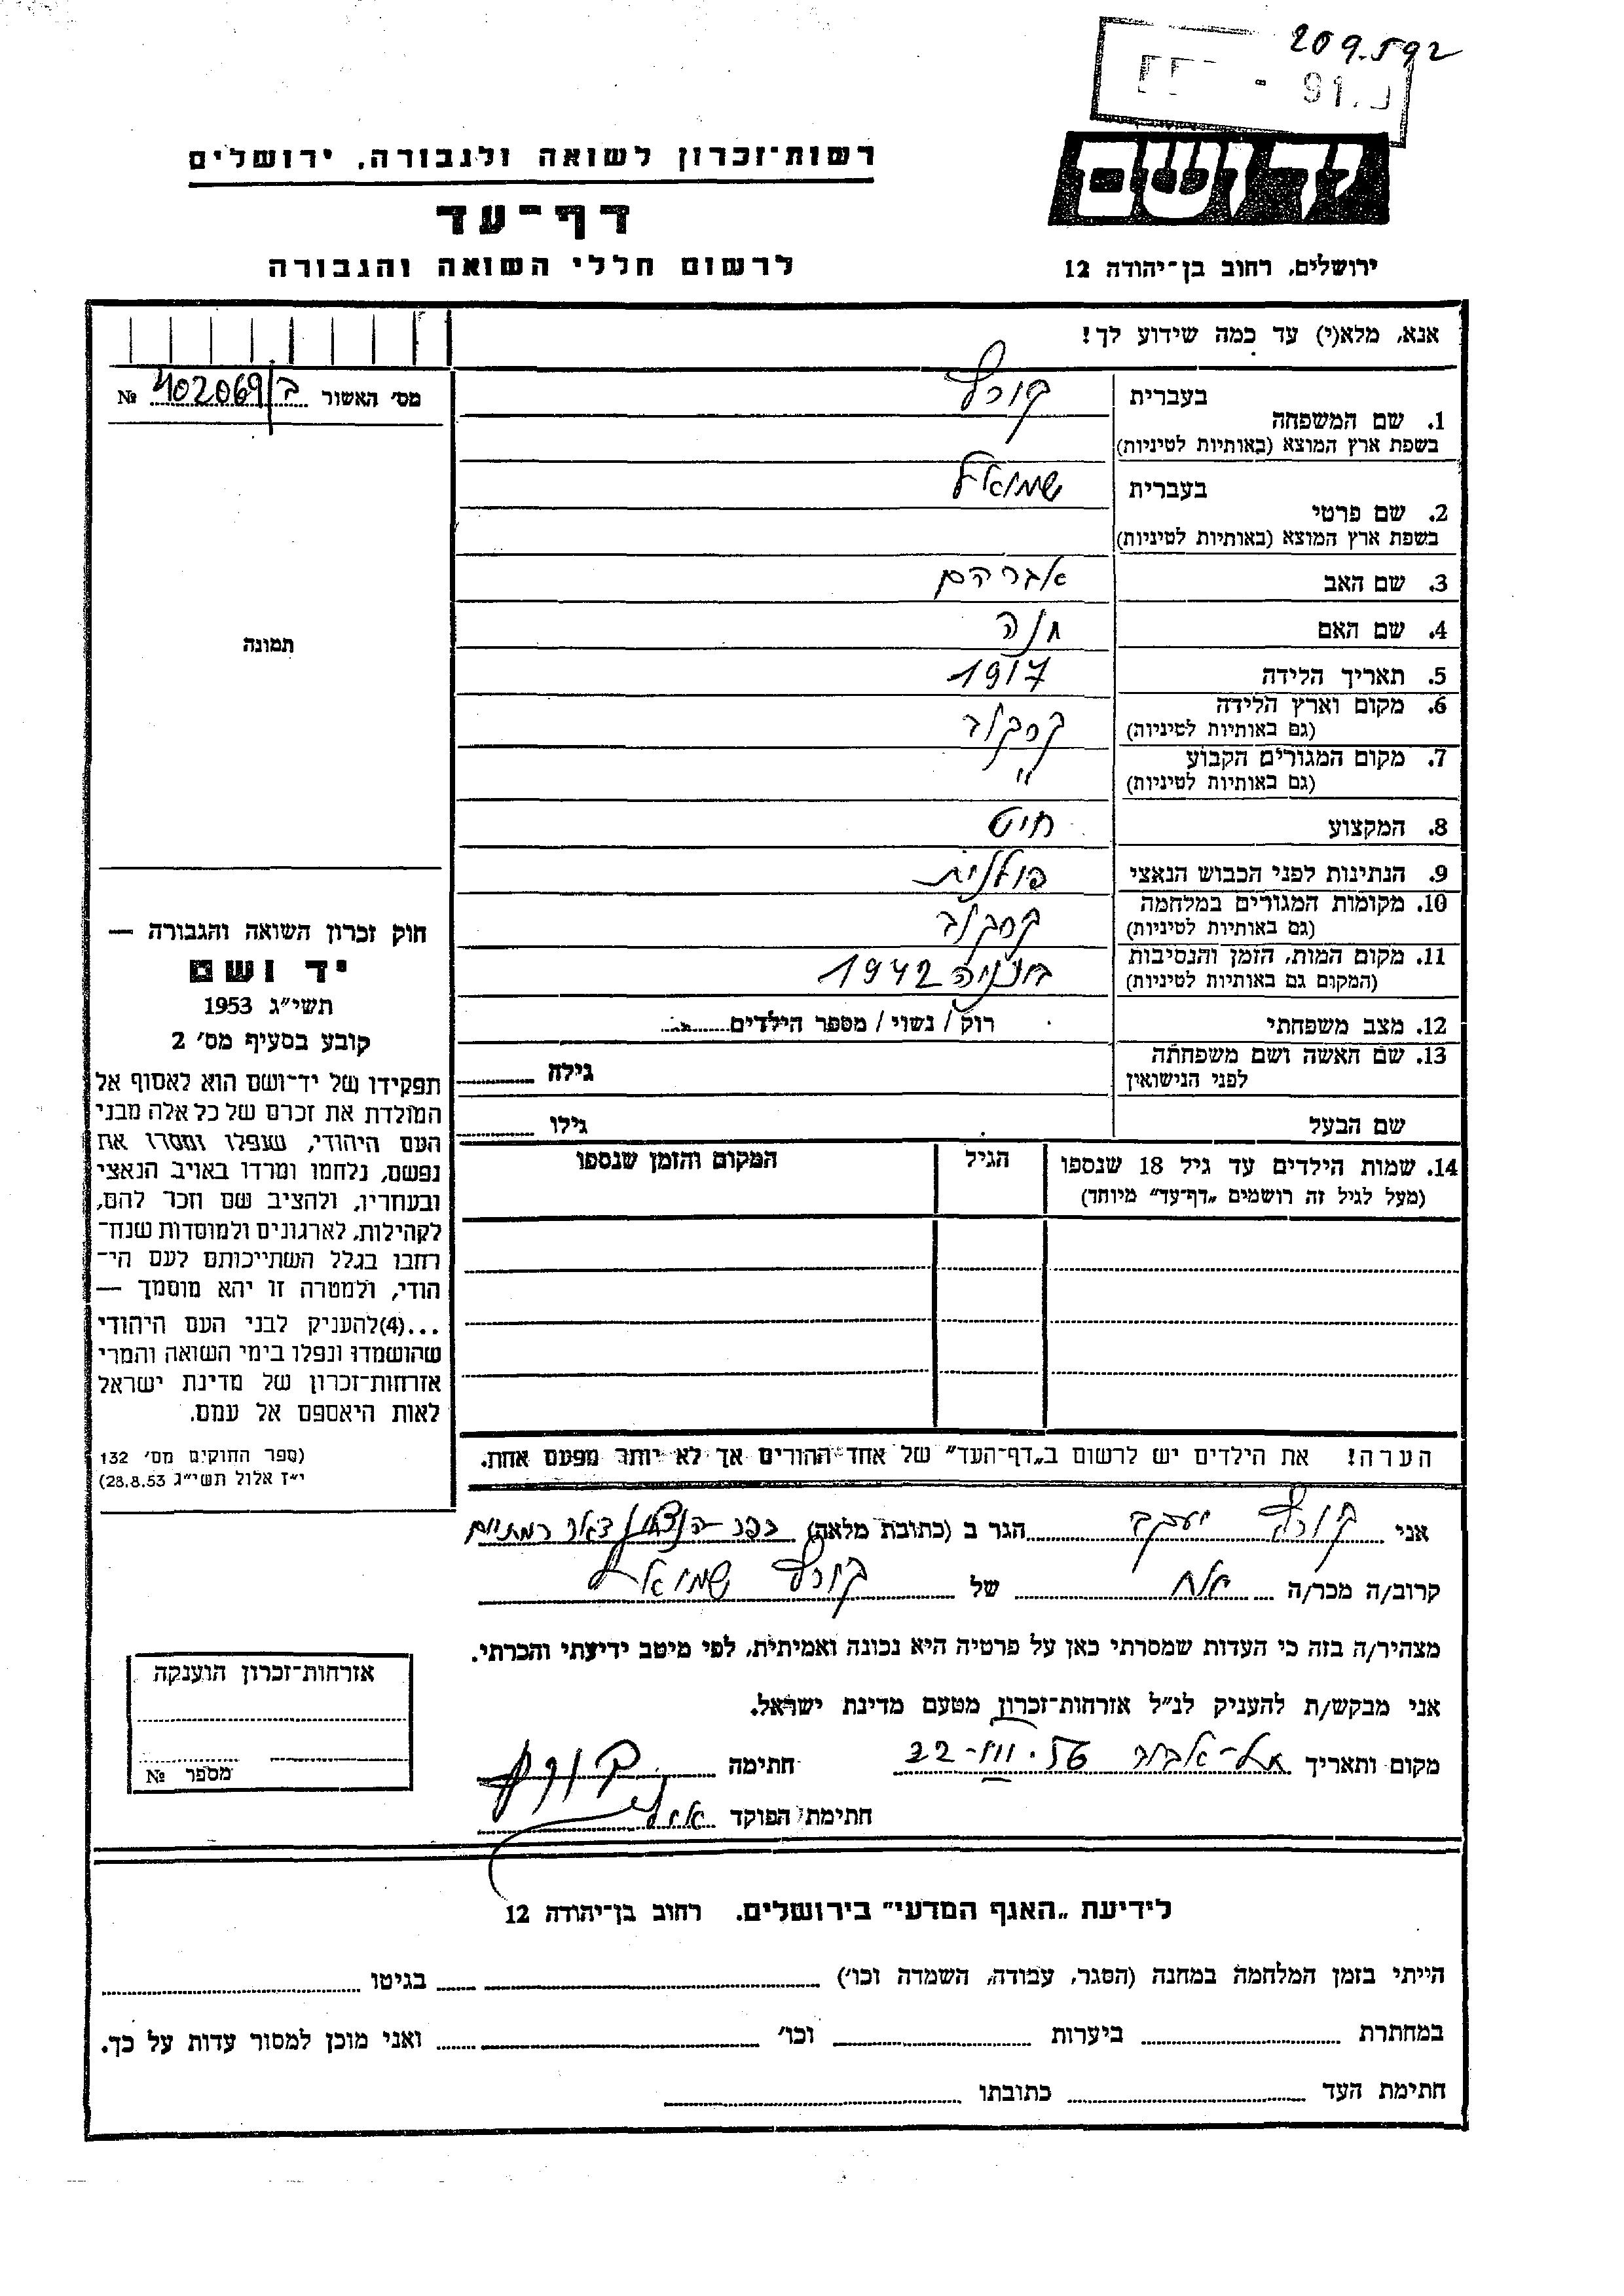 209.592
91.
יד ושם
רשות־זכרון לשואה ולגבורה, ירושלים
דף־עד
לרשום חללי השואה והגבורה
ירושלים, רחוב בן־יהודה 12
אנא, מלא(י) עד כמה שידוע לך!
מס׳ האשור ב/402069 №
1. שם המשפחה
בעברית קורץ
בשפת ארץ המוצא (באותיות לטיניות)
2. שם פרטי
בעברית שמואל
בשפת ארץ המוצא (באותיות לטיניות)
3. שם האב אברהם
4. שם האם חנה
5. תאריך הלידה 1917
6. מקום וארץ הלידה קרקוב
(גם באותיות לטיניות)
7. מקום המגורים הקבוע "
(גם באותיות לטיניות)
8. המקצוע חיט
9. הנתינות לפני הכבוש הנאצי פולנית
10. מקומות המגורים במלחמה קרקוב
(גם באותיות לטיניות)
11. מקום המות, הזמן והנסיבות 1942
(המקום גם באותיות לטיניות)
12. מצב משפחתי רוק / נשוי / מספר הילדים
13. שם האשה ושם משפחתה
לפני הנישואין
גילה
שם הבעל גילו
14. שמות הילדים עד גיל 18 שנספו
(מעל לגיל זה רושמים „דף־עד” מיוחד)
הגיל
המקום והזמן שנספו
הערה! את הילדים יש לרשום ב„דף־העד” של אחד ההורים אך לא יותר מפעם אחת.
תמונה
חוק זכרון השואה והגבורה —
יד ושם
תשי״ג 1953
קובע בסעיף מס׳ 2
תפקידו של יד־ושם הוא לאסוף אל
המולדת את זכרם של כל אלה מבני
העם היהודי, שנפלו ומסרו את
נפשם, נלחמו ומרדו באויב הנאצי
ובעוזריו, ולהציב שם וזכר להם,
לקהילות, לארגונים ולמוסדות שנח־
רחבו בגלל השתייכותם לעם הי־
הודי, ולמטרה זו יהא מוסמך —
...(4)להעניק לבני העם היהודי
שהושמדו ונפלו בימי השואה והמרי
אזרחות־זכרון של מדינת ישראל
לאות היאספם אל עמם.
(ספר החוקים מס׳ 132
י״ז אלול תשי״ג 28.8.53)
אני קורץ יעקב הגר ב (כתובת מלאה) כפר הנצחון דאר רמתיים
קרוב/ה מכר/ה אח של קורץ שמואל
מצהיר/ה בזה כי העדות שמסרתי כאן על פרטיה היא נכונה ואמיתית, לפי מיטב ידיעתי והכרתי.
אני מבקש/ת להעניק לנ״ל אזרחות־זכרון מטעם מדינת ישראל.
מקום ותאריך תל־אביב 22-VII.56 חתימה קורץ
חתימת הפוקד
אזרחות־זכרון הוענקה
מספר №
לידיעת „האגף המדעי” בירושלים, רחוב בן־יהודה 12
הייתי בזמן המלחמה במחנה (הסגר, עבודה, השמדה וכו׳) בגיטו
במחתרת ביערות וכו׳ ואני מוכן למסור עדות על כך.
חתימת העד כתובתו